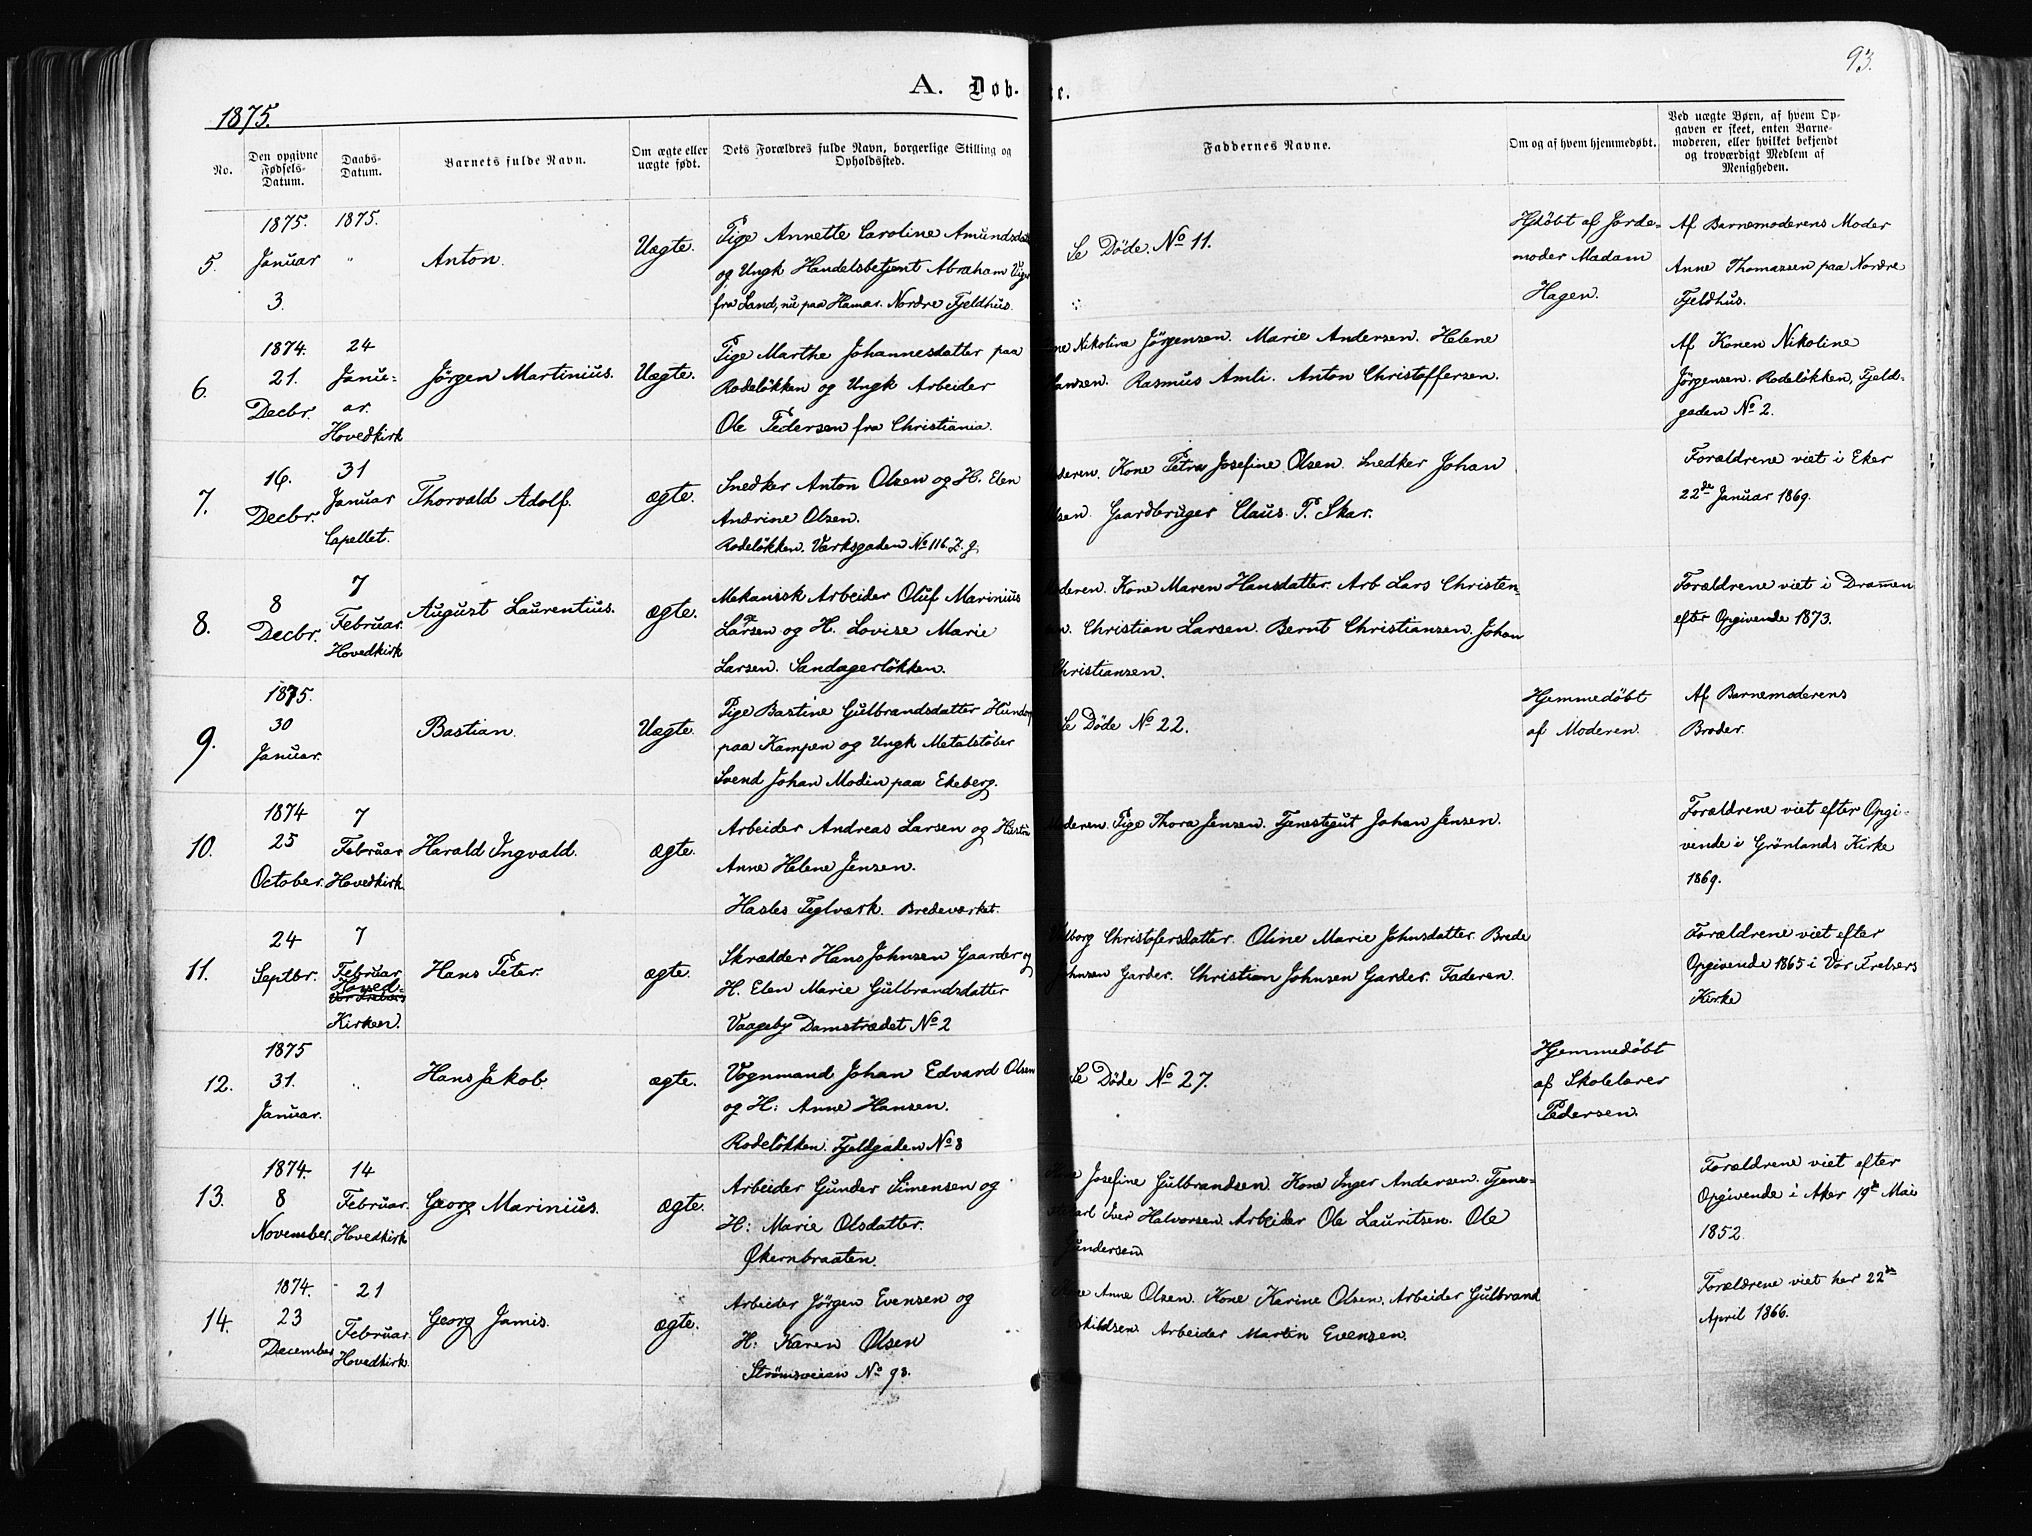 93.
A. Døb- te.
1875.
No.
Den opgivne Fødsels-Datum.
Daabs-Datum.
Barnets fulde Navn.
Om ægte eller uægte født.
Dets Forældres fulde Navn, borgerlige Stilling og Opholdssted.
Faddernes Navne.
Om og af hvem hjemmedøbt.
Ved uægte Børn, af hvem Opgaven er skeet, enten Barnemoderen, eller hvilket bekjendt og troværdigt Medlem af Menigheden.
5.
1875.
Januar
3.
1875.
"
Anton.
Uægte.
Pige Annette Caroline Amundsdat
og Ungk Handelsbetjent Abraham
fra Land, nu paa Hamar. Nordre Fjeldhus.
Se Döde. No 11.
Hdöbt af Jorde-
moder Madam
Hagen.
Af Barnemoderens Moder
Anne Thomassen paa Nordre
Fjeldhus.
6.
1874.
21.
Decbr.
24
Janu-
ar.
Hovedkirk
Jörgen Martinius.
Uægte.
Pige Marthe Johannesdatter paa
Rodelökken og Ungk Arbeider
Ole Pedersen fra Christiania.
Nikolina Jörgensen. Marie Andersen. Helene
Hansen. Rasmus Amli. Anton Christoffersen.
Af Konen Nikoline
Jörgensen. Rodelökken, Fjeld-
gaden No 2.
7.
16.
Decbr.
31
Januar
Capellet.
Thorvald Adolf.
ægte.
Snedker Anton Olsen og H. Elen
Andrine Olsen.
Rodelökken. Værksgaden No 116. Z. g.
Moderen. Kone Petra Josefine Olsen. Snedker Johan
Olsen. Gaardbruger Claus. P. Skar.
Forældrene viet i Eker
22de Januar 1869.
8.
8
Decbr.
7
Februar.
Hovedkirk
August Laurentius.
ægte.
Mekanisk Arbeider Oluf Marinius
Larsen og H. Lovise Marie
Larsen. Sandagerlökken.
Moderen. Kone Maren Hansdatter. Arb Lars Christen-
Christian Larsen. Bernt Christiansen. Johan
Christiansen.
Forældrene viet i Drammen
efter Opgivende 1873.
9.
1875.
30
Januar.
Bastian.
Uægte.
Pige Bastine Gulbrandsdatter
paa Kampen og Ungk Metalstöber
Svend Johan Modin paa Ekeberg.
Se Döde No 22.
Hjemmedöbt
af Moderen.
Af Barnemoderens
Broder.
10.
1874
25
October.
7
Februar
Hovedkirk.
Harald Ingvald.
ægte.
Arbeider Andreas Larsen og Hustru
Anne Helene Jensen.
Hasles Teglværk. Bredeværket.
Moderen. Pige Thora Jensen. Tjenestegut Johan Jensen.
Forældrene viet efter Opgi-
vende i Grönlands Kirke
1869.
11.
24
Septbr.
7
Februar
Hoved-
Vor Frelsers
Kirken.
Hans Peter.
ægte.
Skrædder Hans Johnsen Gaarder og
H. Elen Marie Gulbrandsdatter
Vaageby Damstrædet No 2
Christofersdatter. Oline Marie Johnsdatter. Brede
Johnsen Garder. Christian Johnsen Garder. Faderen.
Forældrene viet efter
Opgivende 1865 i Vor Frelsers
Kirke
12.
1875
31.
Januar.
"
Hans Jakob.
ægte.
Vognmand Johan Edvard Olsen
og H: Anne Hansen.
Rodelökken. Fjeldgaden No 8
Se Döde No 27.
Hjemmedöbt
af Skolelærer
Pedersen.
13.
1874.
8
November.
14
Februar.
Hovedkirk
Georg Marinius.
ægte.
Arbeider Gunder Simensen og
H: Marie Olsdatter.
Økernbraaten.
Kone Josefine Gulbrandsen. Kone Inger Andersen. Tjene-
stekarl Iver Halvorsen. Arbeider Ole Lauritsen. Ole
Gundersen
Forældrene viet efter
Opgivende i Aker 19de Mai
1852.
14.
1874.
23
December
21
Februar.
Hovedkirk.
Georg Jamis.
ægte.
Arbeider Jörgen Evensen og
H: Karen Olsen
Strömsveien No 93.
Kone Anne Olsen. Kone Karine Olsen. Arbeider Gulbrand
Eskildsen. Arbeider Martin Evensen.
Forældrene viet her 22de
April 1866.